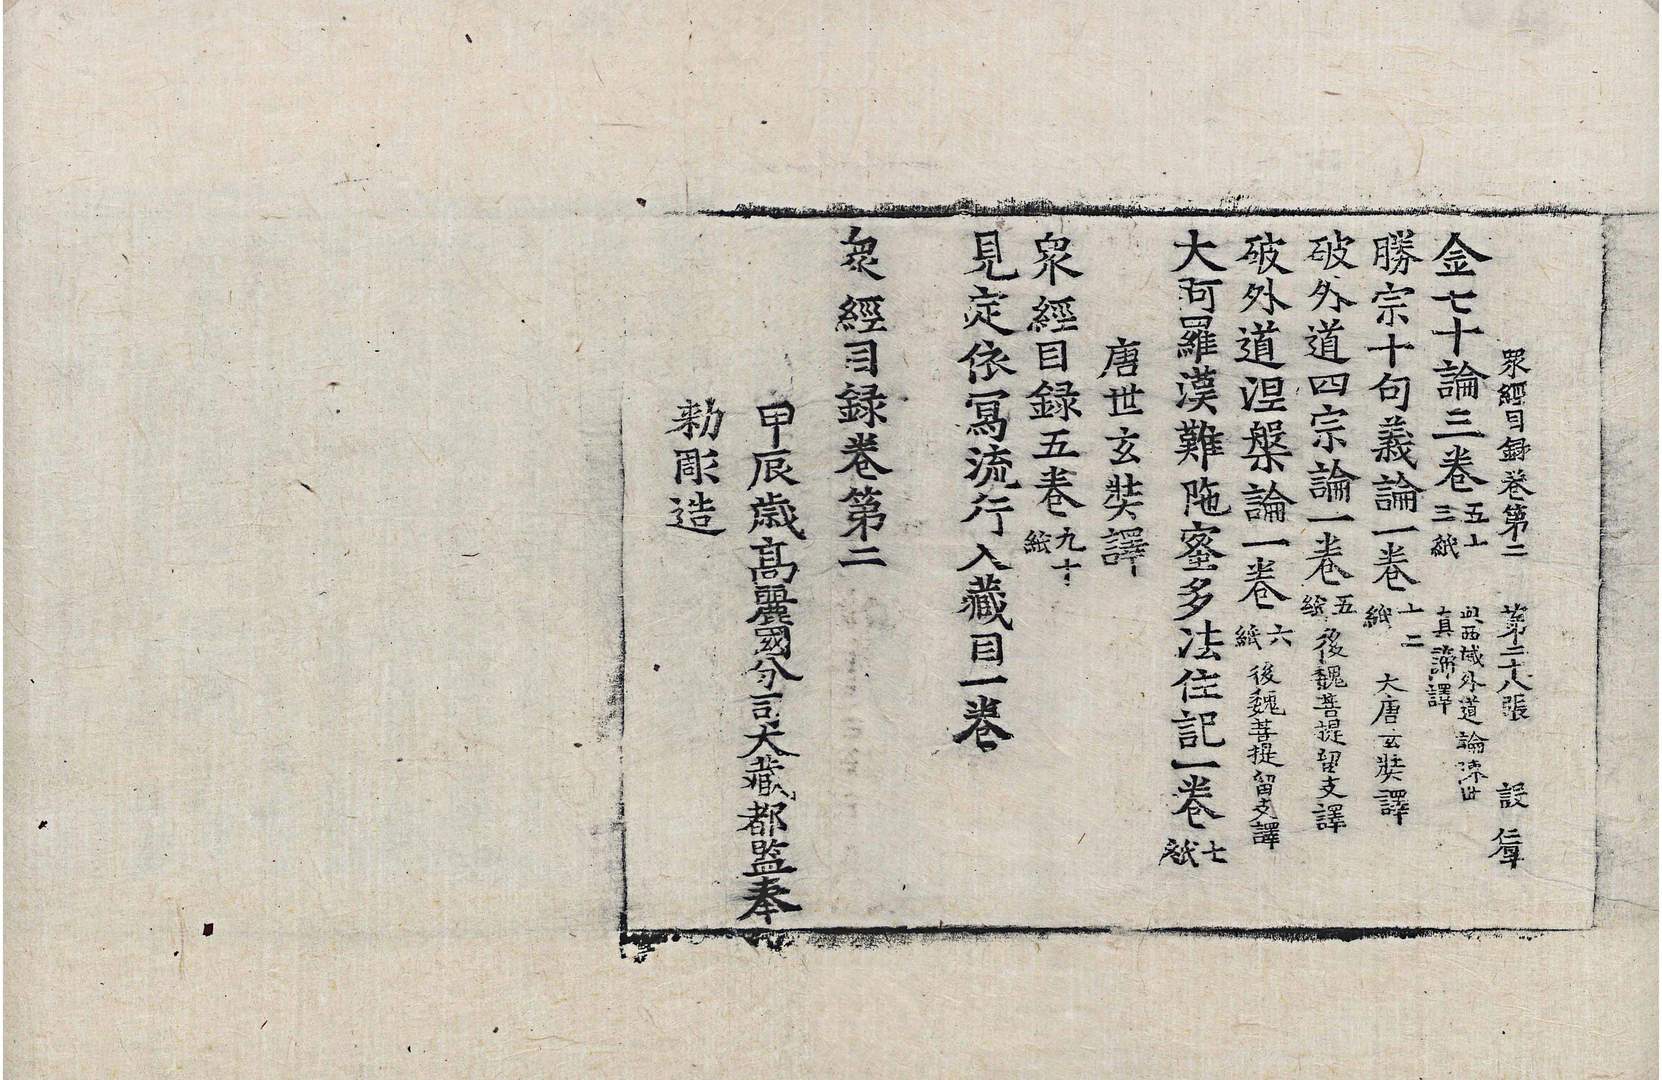 眾經目録卷第二 第二十八張 設 㒓
金七十論三卷 五十三紙 此西域外道論陳世真諦譯
勝宗十句義論一卷 十二紙 大唐玄奘譯
破外道四宗論一卷 五紙 後魏菩提留支譯
破外道涅槃論一卷 六紙 後魏菩提留支譯
大阿羅漢難陁蜜多法住記一卷 七紙
唐世玄奘譯
眾經目録五卷 九十紙
見定依寫流行入藏目一卷
眾經目録卷第二
甲辰歲高麗國分司大藏都監奉
勑彫造